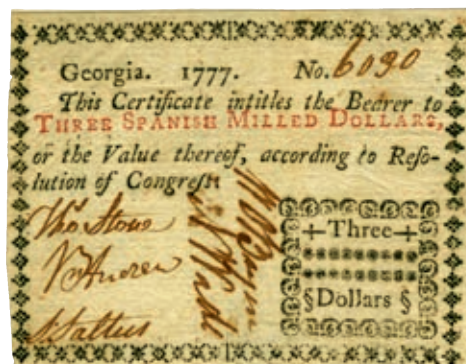 Georgia. 1777. No. 6090
This Certificate intitles the Bearer to
THREE SPANISH MILLED DOLLARS,
or the Value thereof, according to Reso-
lution of Congress:
Tho Stone
+Three+
§Dollars §